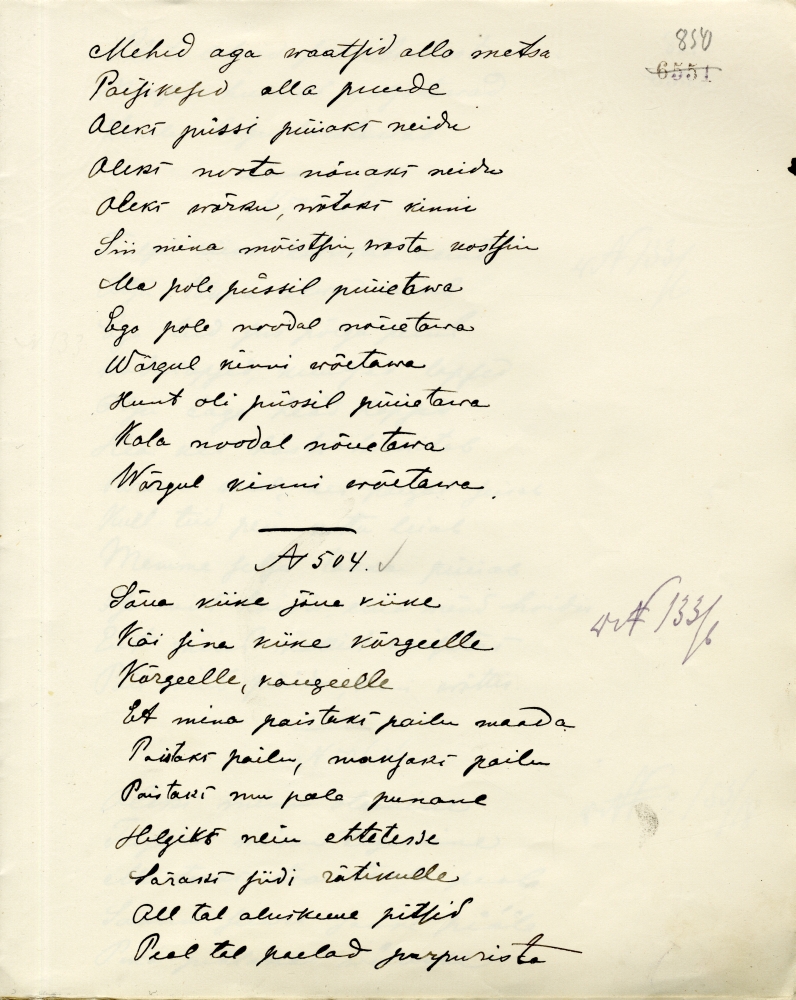 850
6551
Mehed aga waatsid alla metsa
Poisikesed alla puude
Oleks püssi püüaks neidu
Oleks noota nõuaks neidu
Oleks wõrku, wõtaks kinni
Sii mina mõistsin, wasta kostsin
Ma pole püssil püüetawa
Ega pole noodal nõuetawa
Wõrgul kinni wõetawa
Hunt oli püssil püüetawa
Kala noodal nõuetawa
Wõrgul kinni wõetawa.
№ 504. ✓
Sõua kiike jõua kiike
Käi sina kiike kõrgeelle
Kõrgeelle, kaugeelle
Et mina paistaks pailu maada
Paistaks pailu, maksaks pailu
Paistaks mu pala punane
Helgiks nein ehtetesse
Säraks siidi rätikulle
All tal aluskuue pitsid
Peal tal paelad purpurista
№ 133/6